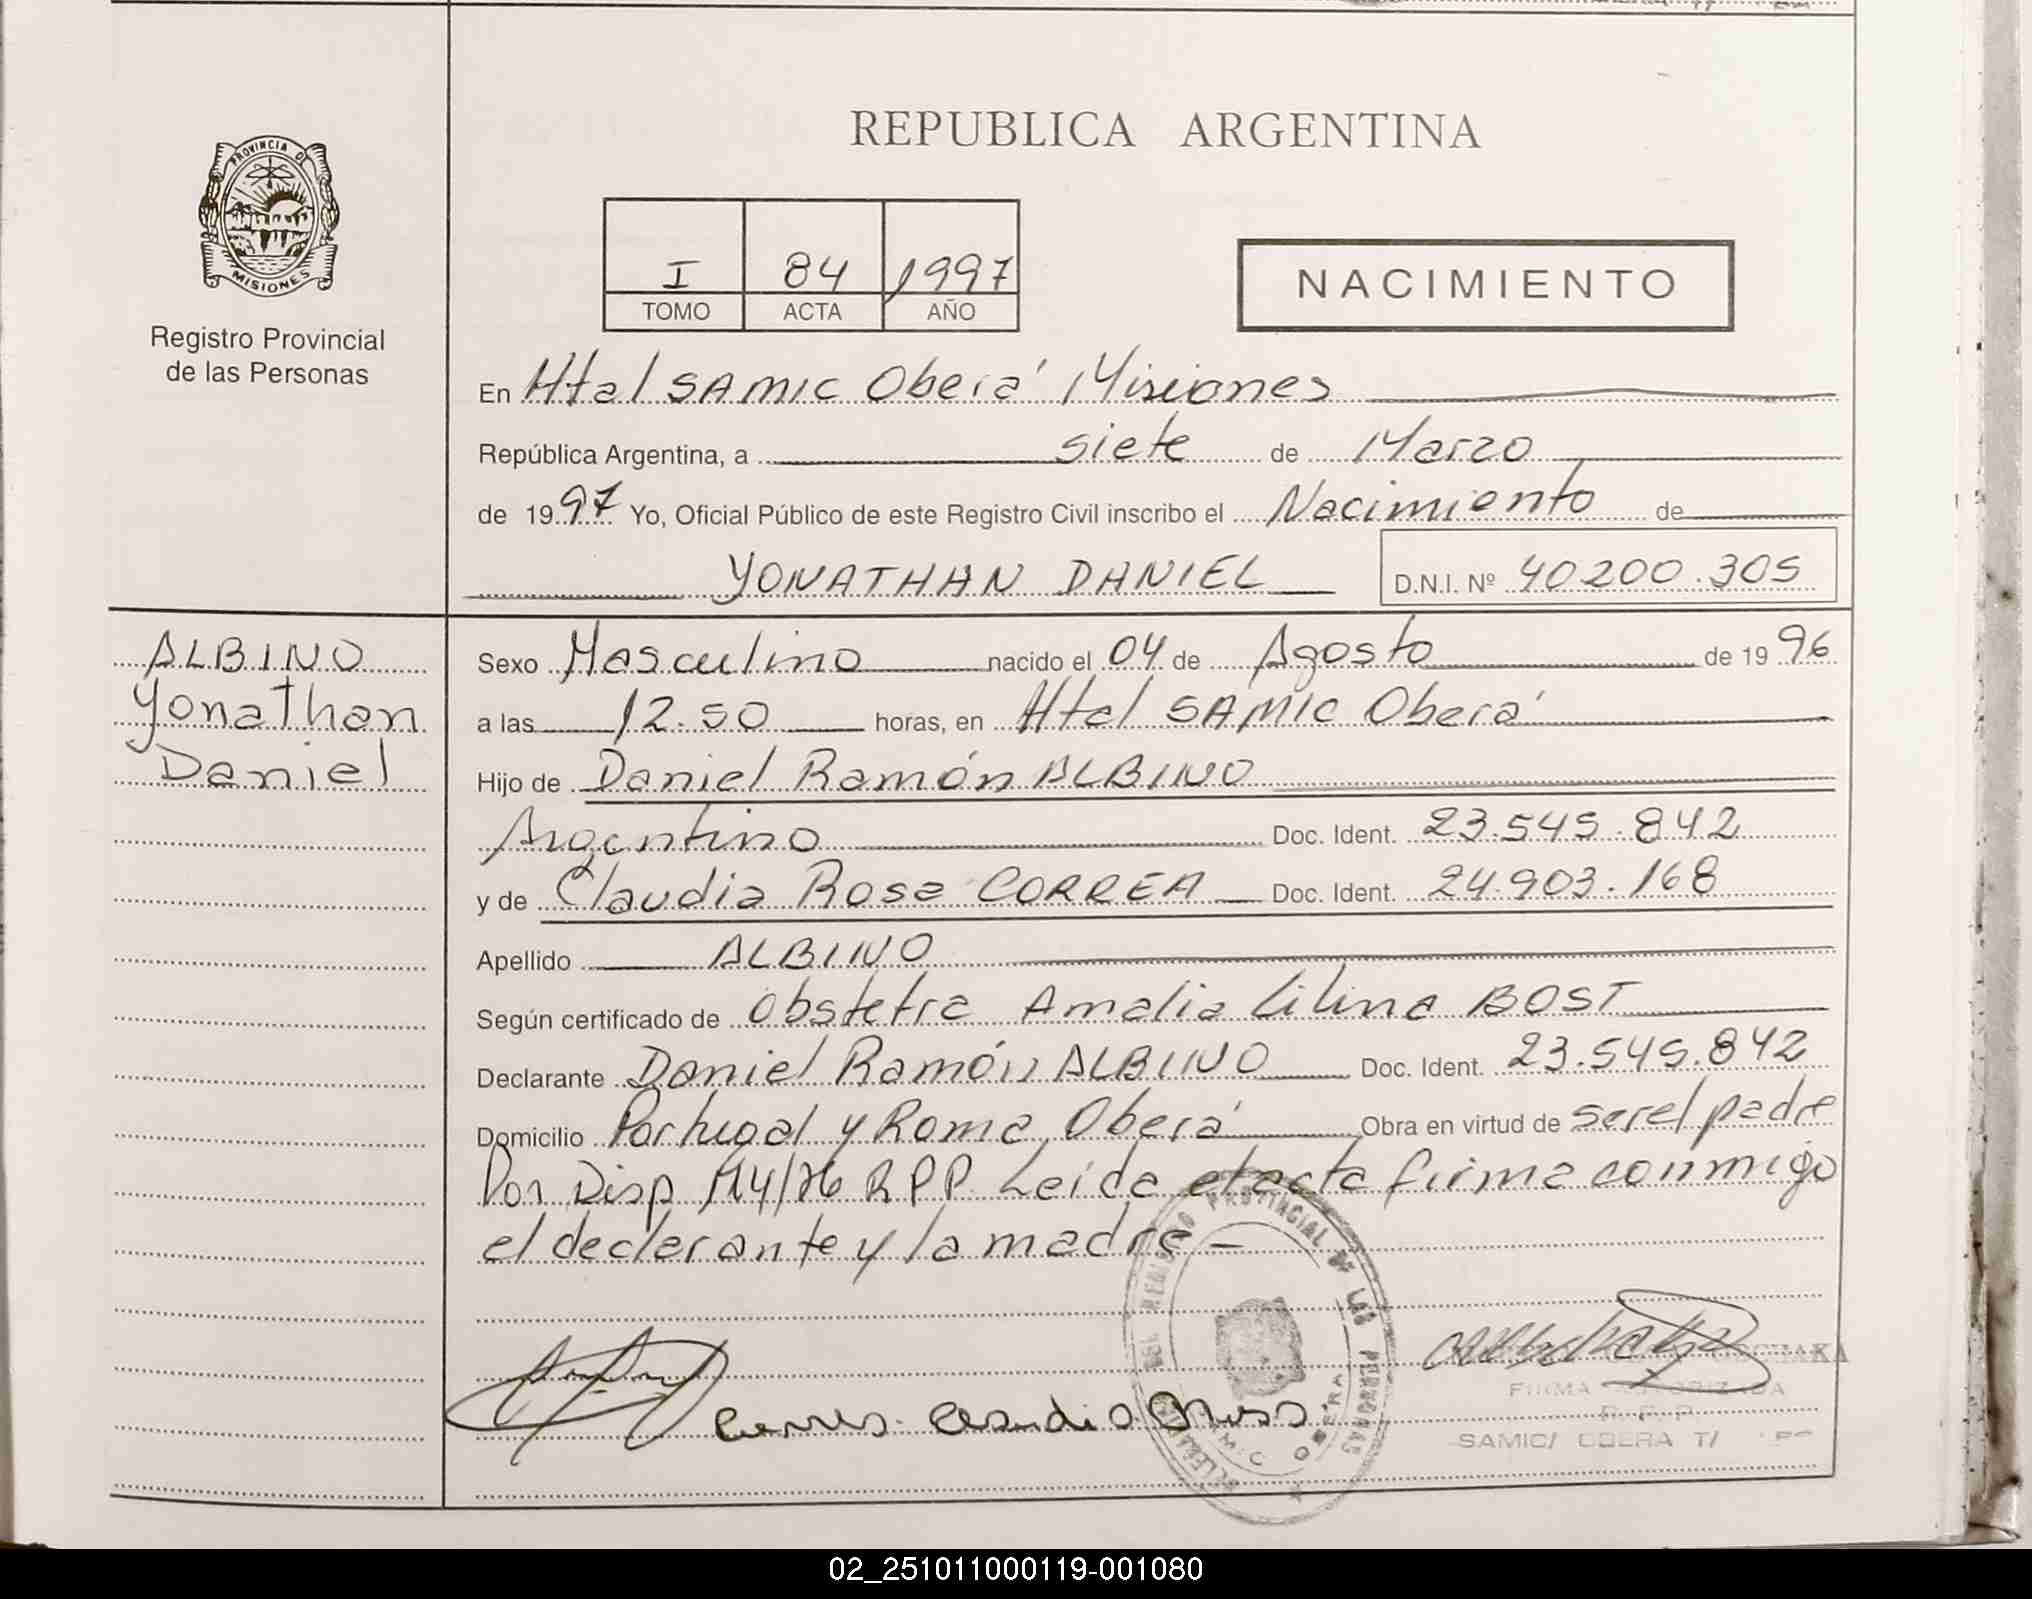 REPUBLICA ARGENTINA
PROVINCIA DE
MISIONES
Registro Provincial
de las Personas
I 84 1997
TOMO ACTA AÑO
NACIMIENTO
En Htal SAMIC Oberá Misiones
República Argentina, a siete de Marzo
de 1997 Yo, Oficial Público de este Registro Civil inscribo el Nacimiento de
YONATHAN DANIEL D.N.I. Nº 40200.305
ALBINO
Yonathan
Daniel
Sexo Masculino nacido el 04 de Agosto de 1996
a las 12.50 horas, en Htal SAMIC Oberá
Hijo de Daniel Ramón ALBINO
Argentino Doc. Ident. 23.545.842
y de Claudia Rosa CORREA Doc. Ident. 24.903.168
Apellido ALBINO
Según certificado de Obstetra Amalia Lilina BOST
Declarante Daniel Ramón ALBINO Doc. Ident. 23.545.842
Domicilio Portugal y Roma Oberá Obra en virtud de ser el padre
Por Disp 114/76 RPP. Leída el acta firma conmigo
el declarante y la madre -
REGISTRO PROVINCIAL DE LAS PERSONAS
OBERA
FIRMA AUTORIZADA
SAMIC/ OBERA T/
02_251011000119-001080